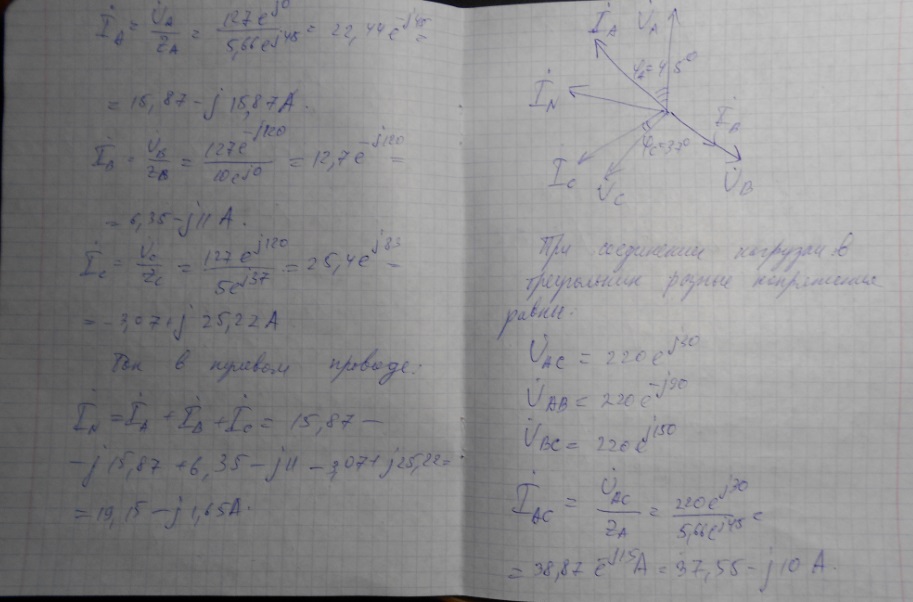 İ_A = U̇_A/Z_A = 127e^j0/5,66e^j45 = 22,44e^-j45 =
= 15,87 - j 15,87 A.
İ_B = U̇_B/Z_B = 127e^-j120/10e^j0 = 12,7e^-j120 =
= 6,35 - j11 A.
İ_C = U̇_C/Z_C = 127e^j120/5e^j37 = 25,4e^j83 =
= -3,07 + j 25,22 A
Ток в нулевом проводе:
İ_N = İ_A + İ_B + İ_C = 15,87 -
- j 15,87 + 6,35 - j11 - 3,07 + j25,22 =
= 19,15 - j 1,65 A.
İ_A U̇_A
φ_A = 45°
İ_N
İ_A
φ_C = 37°
İ_C U̇_C U̇_B
При соединении нагрузки в
треугольник фазные напряжения
равны:
U̇_AC = 220e^j30
U̇_AB = 220e^-j90
U̇_BC = 220e^j150
İ_AC = U̇_AC/Z_A = 220e^j30/5,66e^j45 =
= 38,87 e^-j15 A = 37,55 - j10 A.